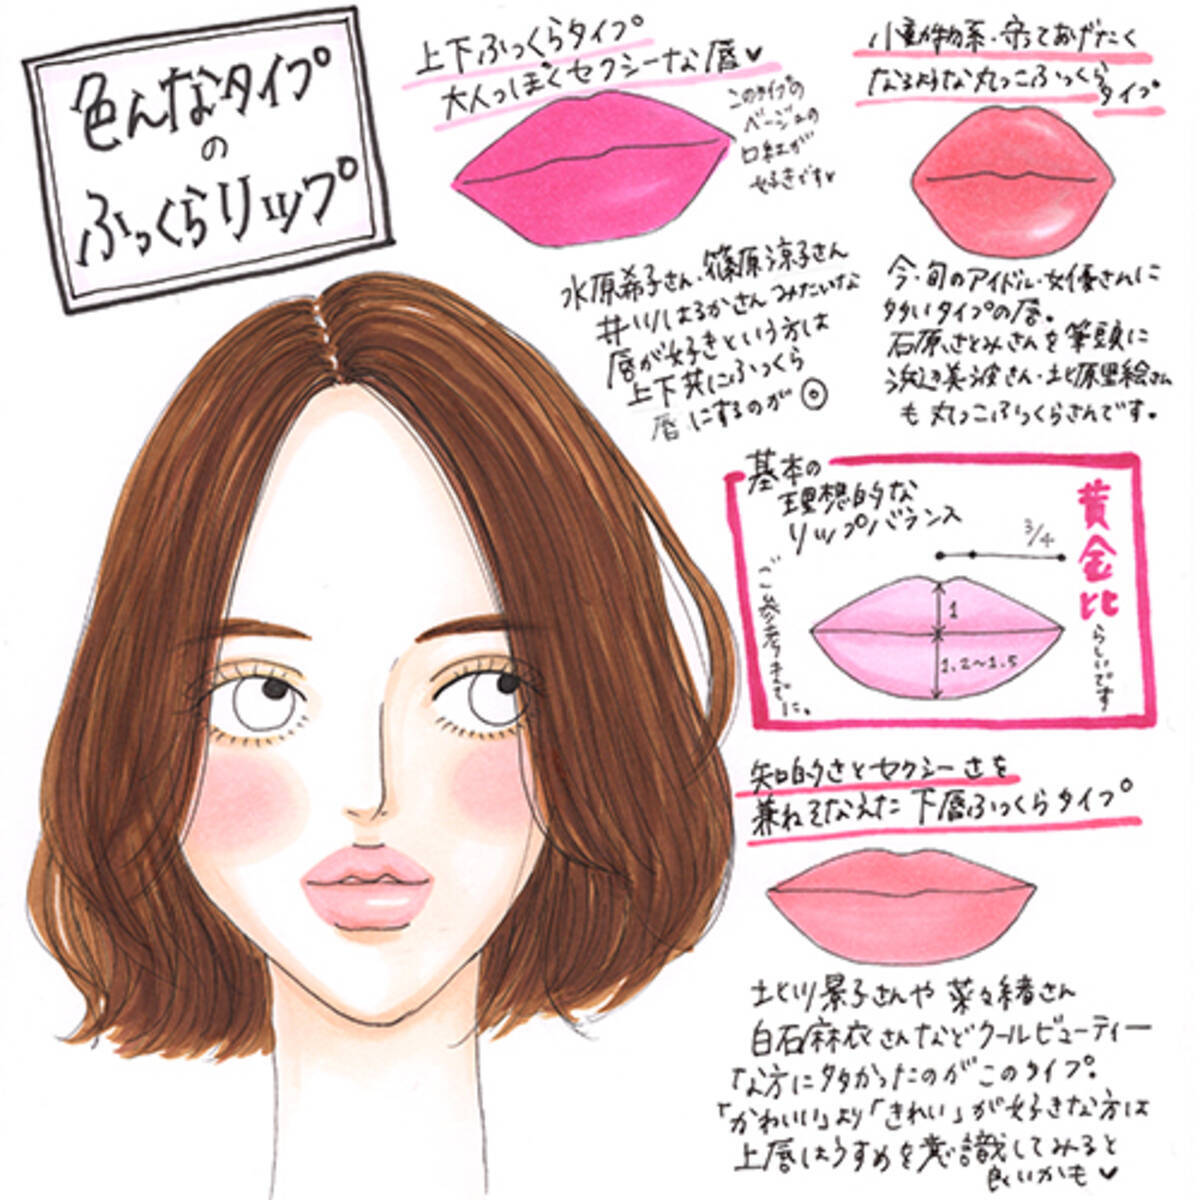 色んなタイプ
の
ふっくらリップ
上下ふっくらタイプ
大人っぽくセクシーな唇♥
このタイプの
ベージュの
口紅が
好きです♥
水原希子さん・篠原涼子さん
井川はるかさんみたいな
唇が好きという方は
上下共にふっくら
唇にするのが◎
小動物系・守ってあげたく
なるような丸っこふっくら
タイプ
今・旬のアイドル・女優さんに
多いタイプの唇。
石原さとみさんを筆頭に
浜辺美波さん・土屋里絵さん
も丸っこふっくらさんです。
基本の
理想的な
リップバランス
黄金比
らしいです
3/4
1
1.2~1.5
ご参考までに。
知的さとセクシーさを
兼ねそなえた下唇ふっくらタイプ
北川景子さんや菜々緒さん
白石麻衣さんなどクールビューティー
な方に多かったのがこのタイプ。
「かわいい」より「きれい」が好きな方は
上唇はうすめを意識してみると
良いかも♥